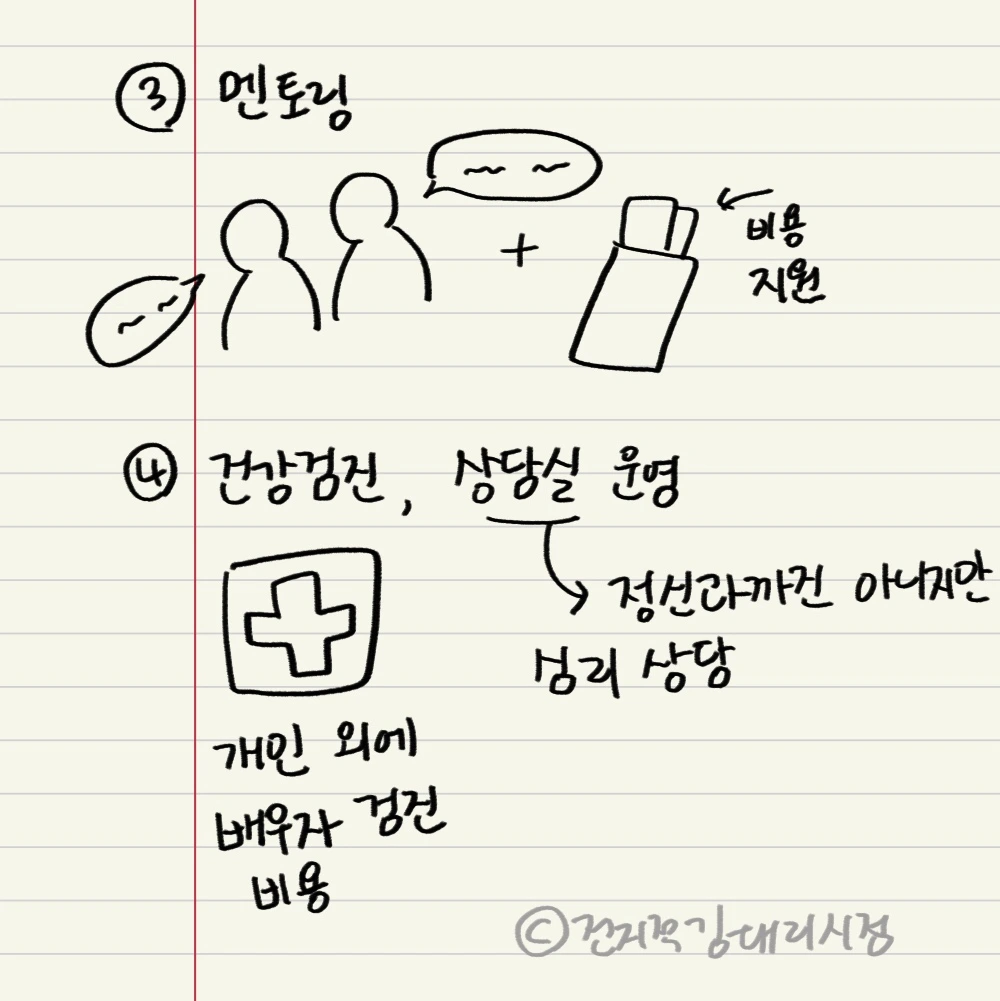 ③ 멘토링
+
비용
지원
④ 건강검진, 상담실 운영
정신과까진 아니지만
심리 상담
개인 외에
배우자 검진
비용
ⓒ전지적김대리시점